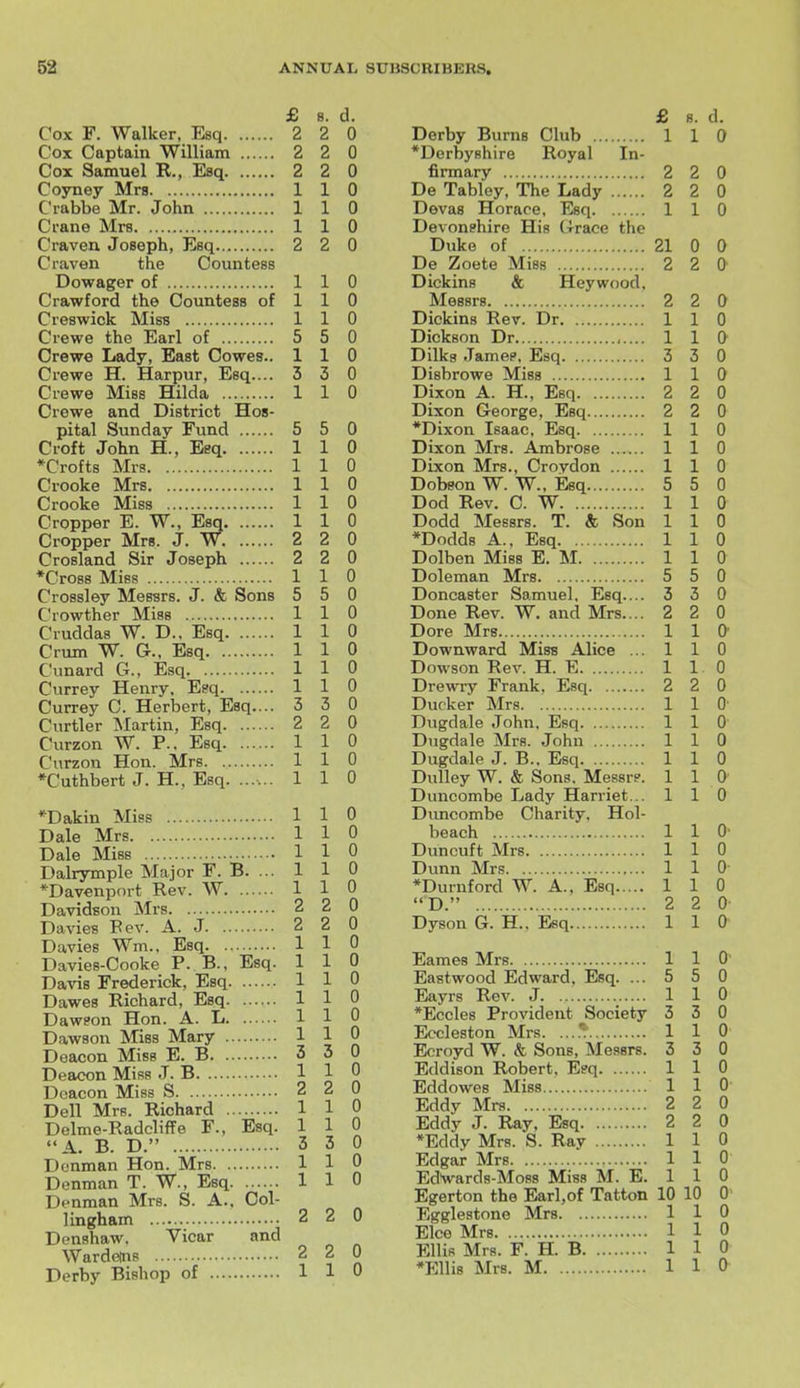 52 ANNUAL SUBSCRIBERS.
£ s. d.
Cox F. Walker, Esq. ...... 2 2 0
Cox Captain William ...... 2 2 0
Cox Samuel R., Esq. ...... 2 2 0
Coyney Mrs. ...... 1 1 0
Crabbe Mr. John ...... 1 1 0
Crane Mrs. ...... 1 1 0
Craven Joseph, Esq. ...... 2 2 0
Craven the Countess
Dowager of ...... 1 1 0
Crawford the Countess of 1 1 0
Creswick Miss ...... 1 1 0
Crewe the Earl of ...... 5 5 0
Crewe Lady, East Cowes.. 1 1 0
Crewe H. Harpur, Esq.... 3 3 0
Crewe Miss Hilda ...... 1 1 0
Crewe and District Hos-
pital Sunday Fund ...... 5 5 0
Croft John H., Esq. ...... 1 1 0
*Crofts Mrs. ...... 1 1 0
Crooke Mrs. ...... 1 1 0
Crooke Miss ...... 1 1 0
Cropper E. W., Esq. ...... 1 1 0
Cropper Mrs. J. W. ...... 2 2 0
Crosland Sir Joseph ...... 2 2 0
*Cross Miss ...... 1 1 0
Crossley Messrs. J. & Sons 5 5 0
Crowther Miss ...... 1 1 0
Cruddas W. D., Esq. ...... 1 1 0
Crum W. G., Esq. ...... 1 1 0
Cunard G., Esq. ...... 1 1 0
Currey Henry, Esq. ...... 1 1 0
Currey C. Herbert, Esq.... 3 3 0
Curtler Martin, Esq. ...... 2 2 0
Curzon W. P., Esq. ...... 1 1 0
Curzon Hon. Mrs. ...... 1 1 0
*Cuthbert J. H., Esq. ...... 1 1 0
*Dakin Miss ...... 1 1 0
Dale Mrs. ...... 1 1 0
Dale Miss ...... 1 1 0
Dalrymple Major F. B. ... 1 1 0
*Davenport Rev. W. ...... 1 1 0
Davidson Mrs. ...... 2 2 0
Davies Rev. A. J. ...... 2 2 0
Davies Wm., Esq. ...... 1 1 0
Davies-Cooke P. B., Esq. 1 1 0
Davis Frederick, Esq. ...... 1 1 0
Dawes Richard, Esq. ...... 1 1 0
Dawson Hon. A. L. ...... 1 1 0
Dawson Miss Mary ...... 1 1 0
Deacon Miss E. B. ...... 3 3 0
Deacon Miss J. B. ...... 1 1 0
Deacon Miss S. ...... 2 2 0
Dell Mrs. Richard ...... 1 1 0
Delme-Radcliffe F., Esq. 1 1 0
"A. B. D." ...... 3 3 0
Denman Hon. Mrs. ...... 1 1 0
Denman T. W., Esq. ...... 1 1 0
Denman Mrs. S. A., Col-
lingham ...... 2 2 0
Denshaw, Vicar and
Wardens ...... 2 2 0
Derby Bishop of ...... 1 1 0
£ s. d.
Derby Burns Club ...... 1 1 0
*Derbyshire Royal In-
firmary ...... 2 2 0
De Tabley, The Lady ...... 2 2 0
Devas Horace, Esq. ...... 1 1 0
Devonshire His Grace the
Duke of ...... 21 0 0
De Zoete Miss ...... 2 2 0
Dickins & Heywood,
Messrs. ...... 2 2 0
Dickins Rev. Dr. ...... 1 1 0
Dickson Dr. ...... 1 1 0
Dilks James, Esq. ...... 3 3 0
Disbrowe Miss ...... 1 1 0
Dixon A. H., Esq. ...... 2 2 0
Dixon George, Esq. ...... 2 2 0
*Dixon Isaac, Esq. ...... 1 1 0
Dixon Mrs. Ambrose ...... 1 1 0
Dixon Mrs., Croydon ...... 1 1 0
Dobson W. W., Esq. ...... 5 5 0
Dod Rev. C. W. ...... 1 1 0
Dodd Messrs. T. & Son 1 1 0
*Dodds A., Esq. ...... 1 1 0
Dolben Miss E. M. ...... 1 1 0
Doleman Mrs. ...... 5 5 0
Doncaster Samuel, Esq.... 3 3 0
Done Rev. W. and Mrs.... 2 2 0
Dore Mrs. ...... 1 1 0
Downward Miss Alice ... 1 1 0
Dowson Rev. H. E. ...... 1 1 0
Drewry Frank, Esq. ...... 2 2 0
Ducker Mrs. ...... 1 1 0
Dugdale John, Esq. ...... 1 1 0
Dugdale Mrs. John ...... 1 1 0
Dugdale J. B., Esq. ...... 1 1 0
Dulley W. & Sons, Messrs. 1 1 0
Duncombe Lady Harriet... 1 1 0
Duncombe Charity, Hol-
beach ...... 1 1 0
Duncuft Mrs. ...... 1 1 0
Dunn Mrs. ...... 1 1 0
*Durnford W. A., Esq..... 1 1 0
"D." ...... 2 2 0
Dyson G. H., Esq. ...... 1 1 0
Eames Mrs. ...... 1 1 0
Eastwood Edward, Esq. ... 5 5 0
Eayrs Rev. J. ...... 1 1 0
*Eccles Provident Society 3 3 0
Eccleston Mrs. ...... 1 1 0
Ecroyd W. & Sons, Messrs. 3 3 0
Eddison Robert, Esq. ...... 1 1 0
Eddowes Miss ...... 1 1 0
Eddy Mrs. ...... 2 2 0
Eddy J. Ray, Esq. ...... 2 2 0
*Eddy Mrs. S. Ray ...... 1 1 0
Edgar Mrs. ...... 1 1 0
Edwards-Moss Miss M. E. 1 1 0
Egerton the Earl, of Tatton 10 10 0
Egglestone Mrs. ...... 1 1 0
Elce Mrs. ...... 1 1 0
Ellis Mrs. F. H. B. ...... 1 1 0
*Ellis Mrs. M. ...... 1 1 0